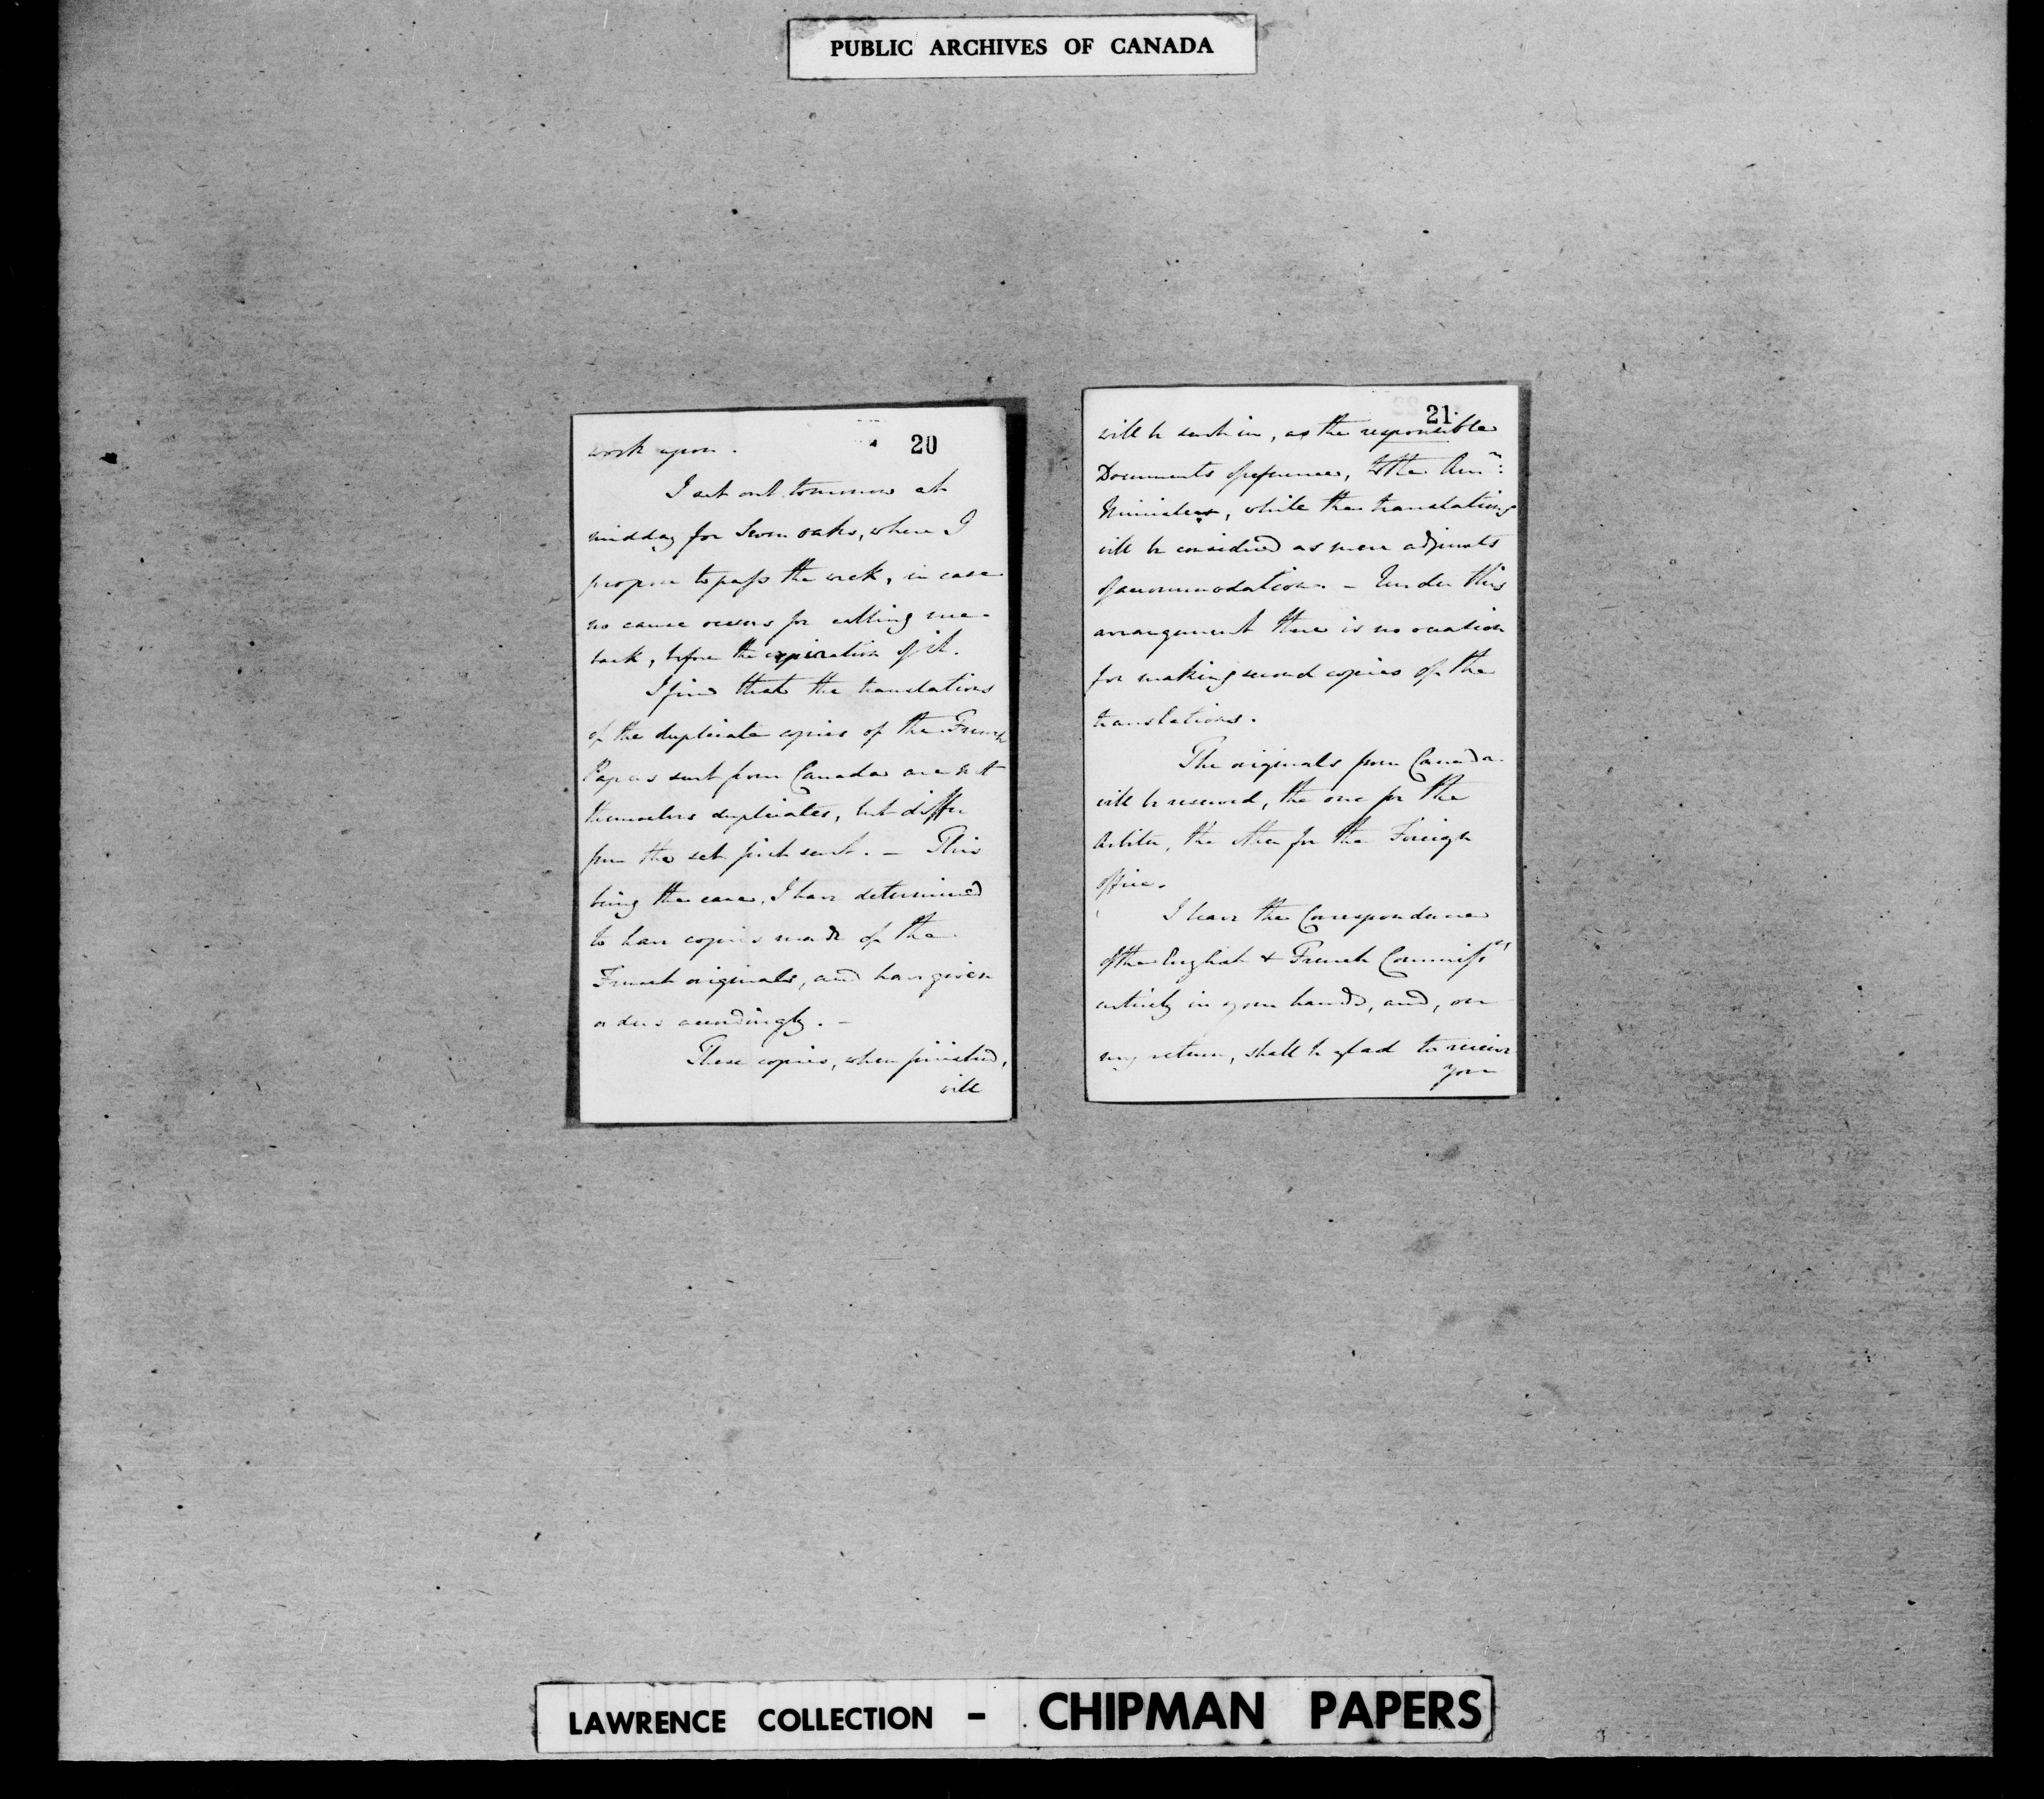 PUBLIC ARCHIVES OF CANADA
20
work upon.
I set out tomorrow at
midday for Seven oaks, where I
propose to pass the week, in case
no cause occurs for calling me
back, before the expiration of it.
I find that the translations
of the duplicate copies of the French
Papers sent from Canada are not
themselves duplicates, but differ
from the set first sent. – This
being the case, I have determined
to have copies made of the
French originals, and have given
orders accordingly. –
These copies, when finished,
will
21
will be sent in, as the responsible
Documents of reference, to the Amn:
Minister, while the translations
will be considered as mere adjuncts
of accommodation. – Under this
arrangement there is no occasion
for making second copies of the
translations.
The originals from Canada
will be reserved, the one for the
Arbiter, the other for the Foreign
office.
I leave the Correspondence
of the English & French Commissrs
entirely in your hands, and, on
my return, shall be glad to receive
your
LAWRENCE COLLECTION - CHIPMAN PAPERS